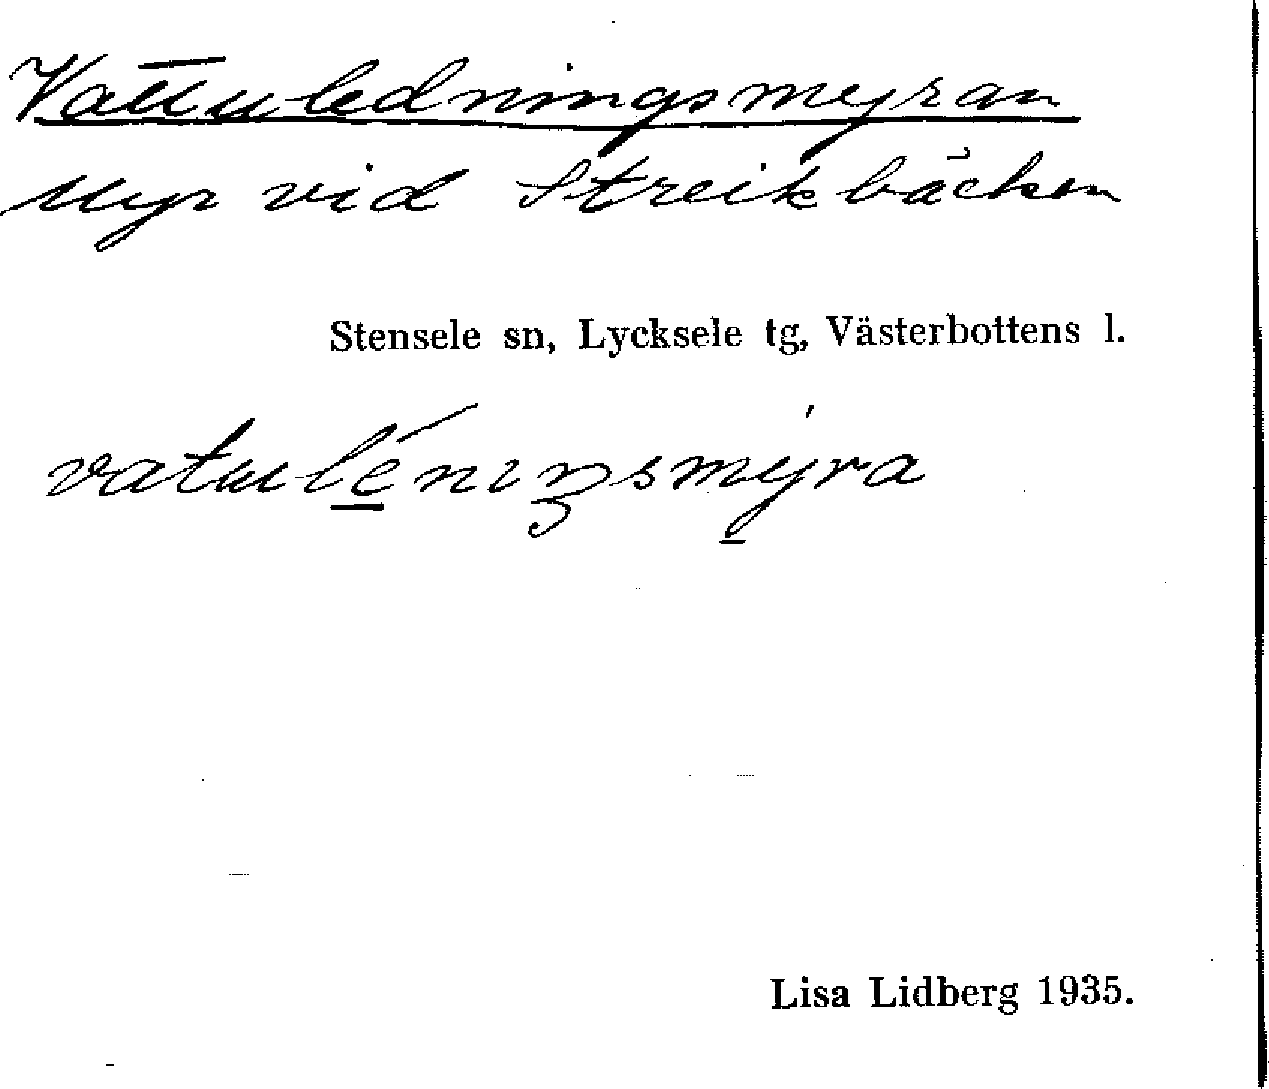 Vattuledningsmyran
Myr vid Streikbäcken
Stensele sn, Lycksele tg, Västerbottens l.
vatulénıŋsmýra
Lisa Lidberg 1935.